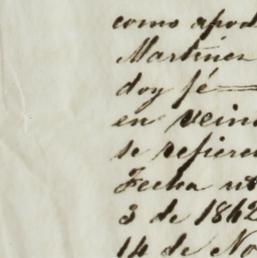 como apod
Martinez
doy fé
en vein
se refiere
Fecha ut
3 de 1862
14 de No